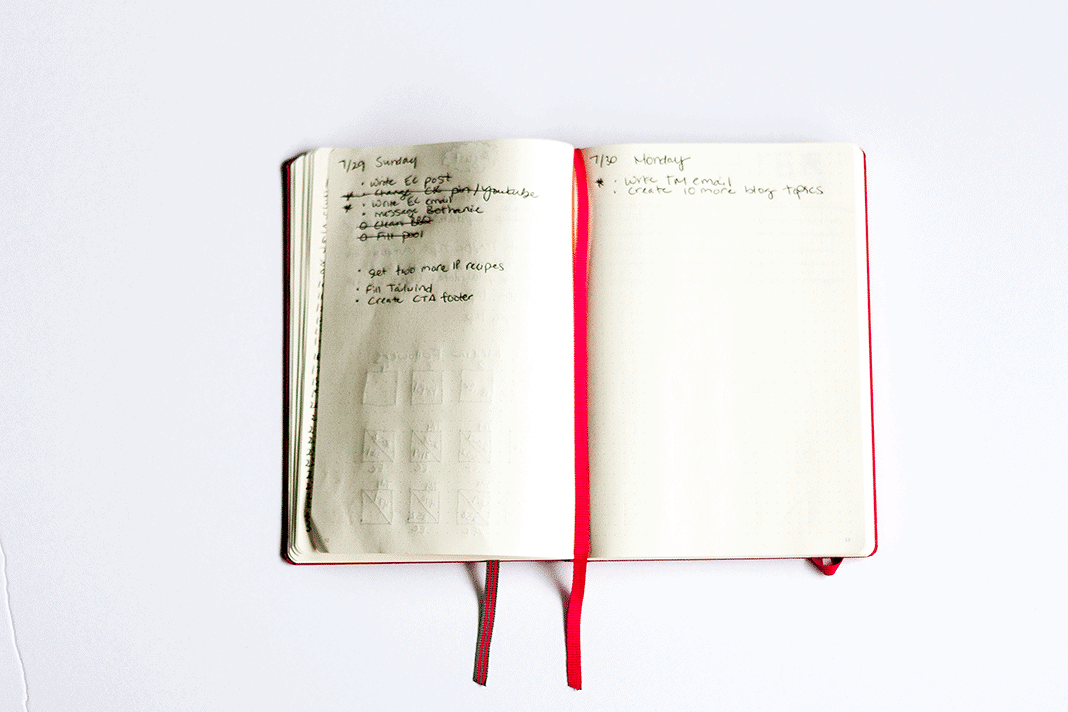 7/29 Sunday
• Write EC post
* • Change EC pin / Youtube
* • Write EC email
• message Bethanie
O Clean BBQ
O Fill pool
• Get two more IP recipes
• Fill Tailwind
• Create CTA footer
7/30 Monday
* • Write TM email
• Create 10 more blog topics